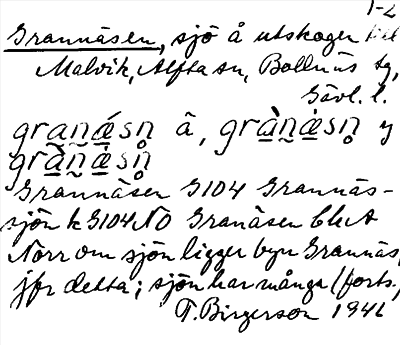 1-2
Grannäsen, sjö å utskogen till
Malvik, Alfta sn, Bollnäs tg,
Gävl. l.
grаn̰ǽsn̥ ā, grànæ̀sn̥ y
grànæ̀sn̥
Grannäsen G104 Grannäs-
sjön k G104 NO Granåsen bl.A
Norr om sjön ligger byn Grannäs,
jfr detta; sjön har många (forts.)
T. Birgerson 1941